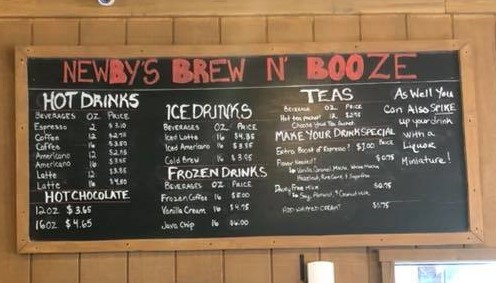 NEWBY'S BREW N' BOOZE
HOT DRINKS
BEVERAGES OZ. PRICE
Espresso 2
Coffee 12
Coffee 16
Americano 12
Americano 16
Latte 12
Latte 16
HOT CHOCOLATE
12OZ $3.65
16OZ $4.65
ICE DRINKS
BEVERAGES OZ. PRICE
Iced Latte 16
Iced Americano 16
Cold Brew 16 $3.95
FROZEN DRINKS
BEVERAGES OZ PRICE
Frozen Coffee 16
Vanilla Cream 16
Java Chip 16 $6.00
TEAS
BEVERAGE OZ PRICE
Hot tea packet 12
Choose your Tea flavor!
MAKE YOUR DRINK SPECIAL
Extra Boost of Espresso? $1.00 PRICE
$0.75
Dairy Free milk $0.75
Soy, Almond, Coconut milk
ADD WHIPPED CREAM? $0.75
As Well You
Can Also SPIKE
up your drink
with a
Liquor
Miniature!